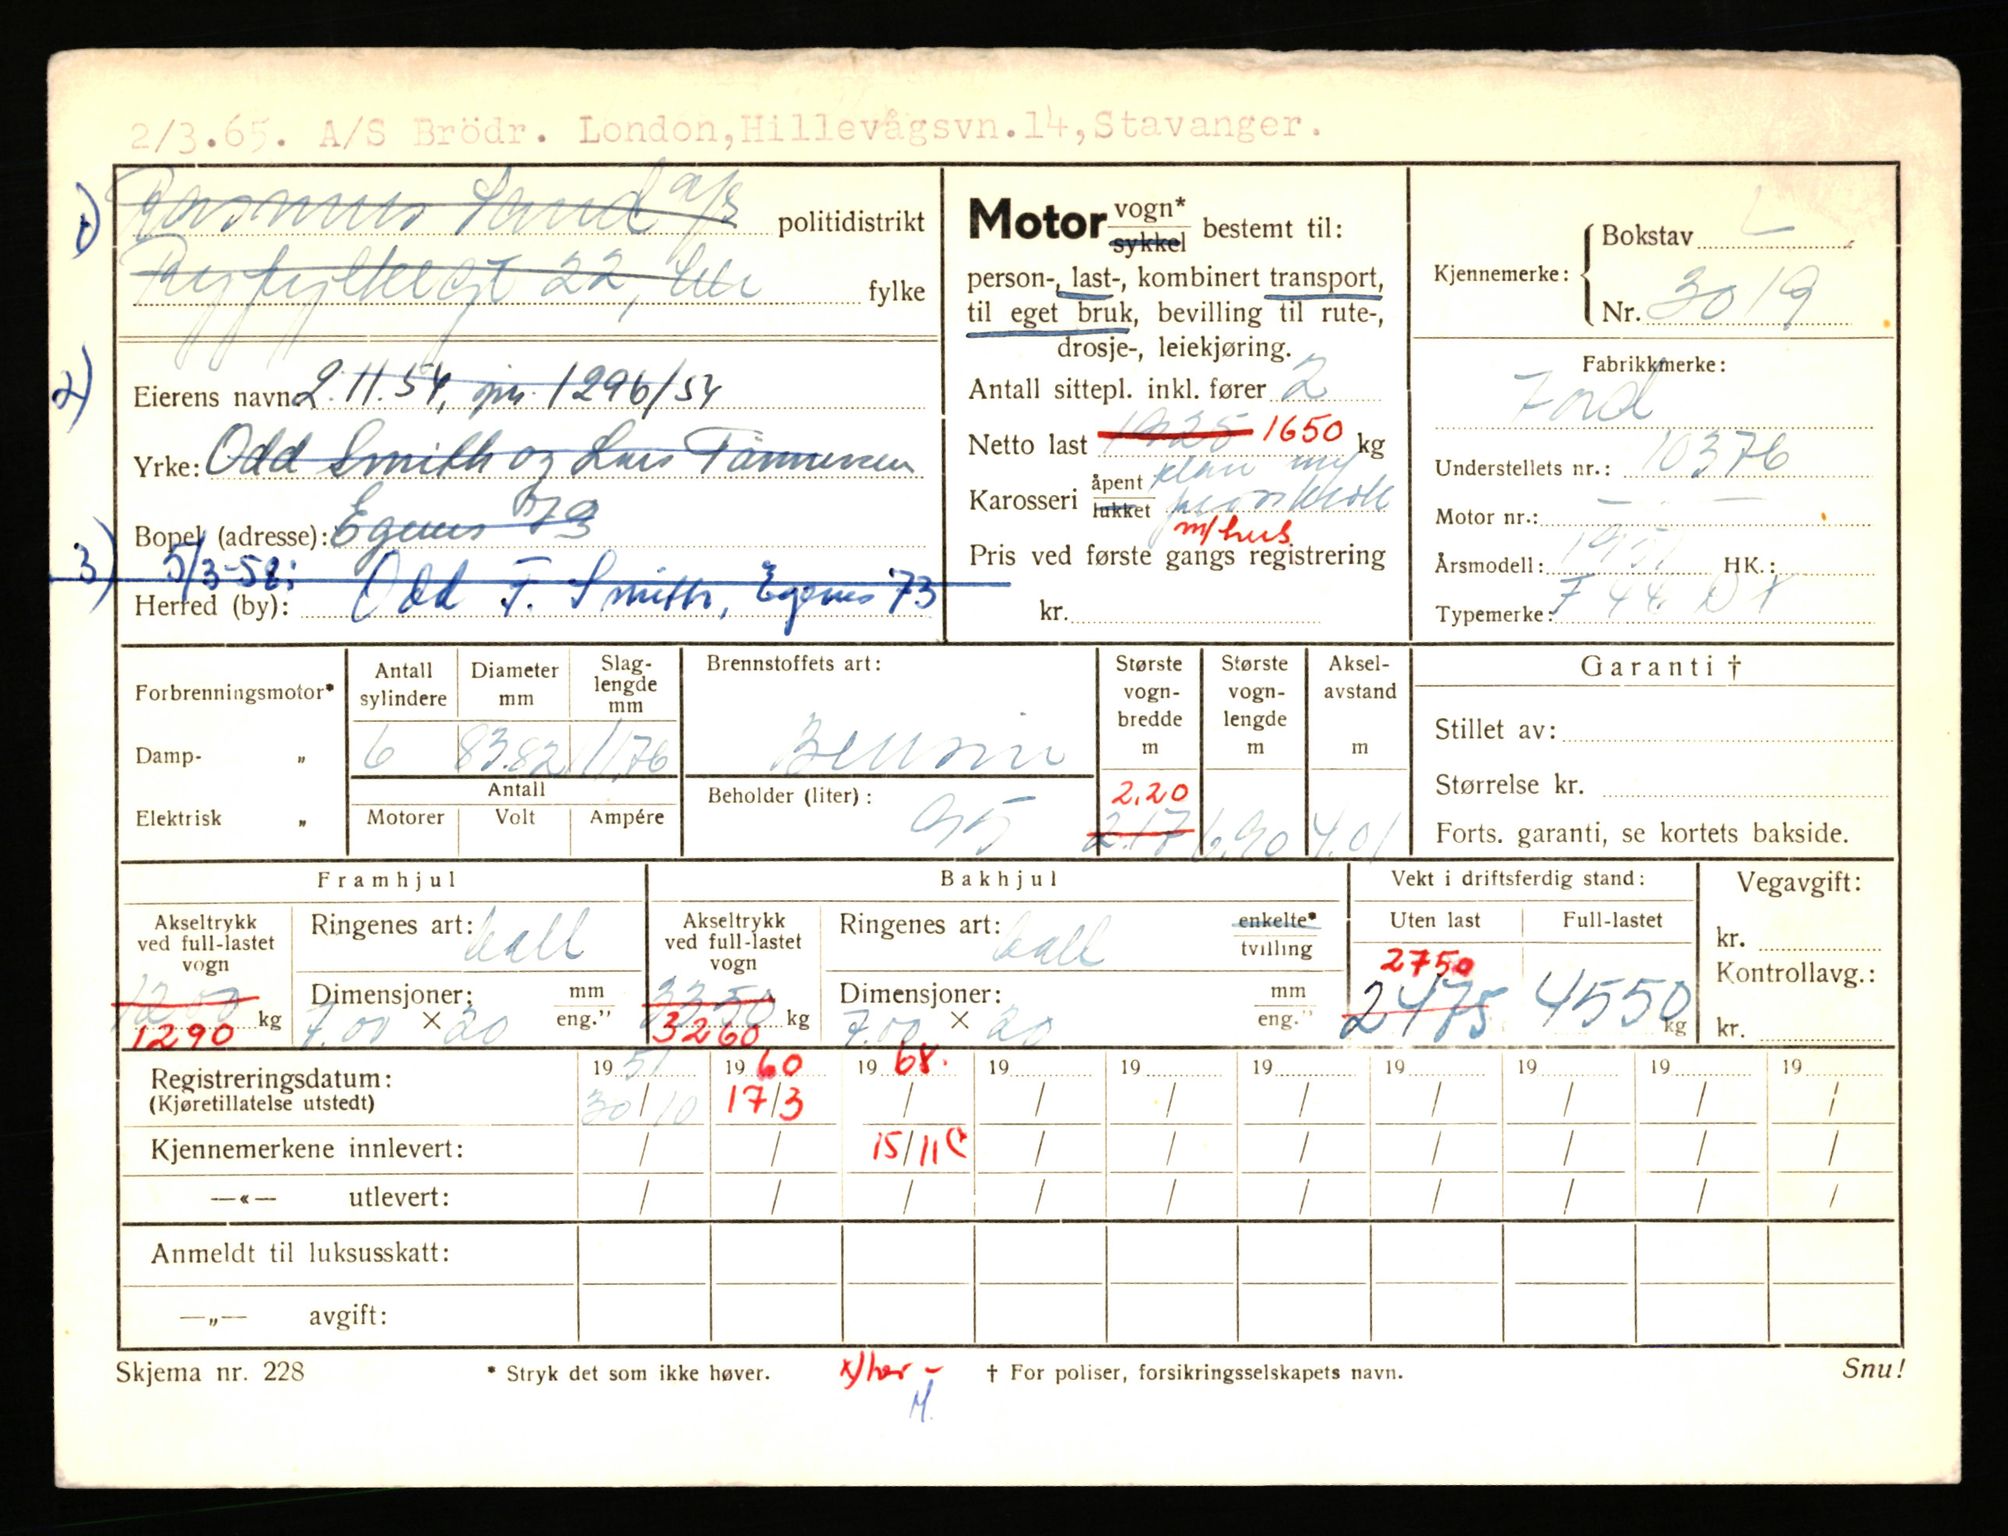 2/3.65. A/S Brödr. London,Hillevågsvn.14,Stavanger.
1) Rasmus Sand a/s politidistrikt
22, fylke
2) Eierens navn: 2.11.54, 1296/54
Yrke: Odd Smith og Lars
Bopel (adresse): Egenes 73
3) 5/3-58:
Herred (by): Odd F. Smith, Egenes 73
Motor vogn* sykkel bestemt til:
person-, last-, kombinert transport,
til eget bruk, bevilling til rute-,
drosje-, leiekjøring.
Antall sittepl. inkl. fører 2
Netto last 1925 1650 kg
Karosseri åpent lukket plan m/
m/hus
Pris ved første gangs registrering
kr.
Kjennemerke: Bokstav L
Nr. 3019
Fabrikkmerke:
Ford
Understellets nr.: 10376
Motor nr.: —
Årsmodell: 1951 HK.:
Typemerke: F
Forbrenningsmotor*
Damp- „
Elektrisk „
Antall sylindere Diameter mm Slag-lengde mm
6 83.82 11.76
Antall
Motorer Volt Ampére
Brennstoffets art:
Bensin
Beholder (liter): 95
Største vogn-bredde m
2.20
2.17
Største vogn-lengde m
6.90
Aksel-avstand m
4.01
Garanti †
Stillet av:
Størrelse kr.
Forts. garanti, se kortets bakside.
Framhjul
Akseltrykk ved full-lastet vogn
1200
1290 kg
Ringenes art: ball
Dimensjoner: mm eng."
7.00 × 20
Bakhjul
Akseltrykk ved full-lastet vogn
3350
3260 kg
Ringenes art: ball enkelte* tvilling
Dimensjoner: mm eng."
7.00 × 20
Vekt i driftsferdig stand:
Uten last Full-lastet
2750
2475 4550 kg
Vegavgift:
kr.
Kontrollavg.:
kr.
19 51 19 60 19 68. 19 19 19 19 19 19 19
Registreringsdatum: 30/10 17/3 / / / / / / / /
(Kjøretillatelse utstedt)
Kjennemerkene innlevert: / / 15/11 / / / / / / /
—«— utlevert: / / / / / / / / / /
Anmeldt til luksusskatt:
—„— avgift:
Skjema nr. 228 * Stryk det som ikke høver. x) her - † For poliser, forsikringsselskapets navn. Snu!
M.